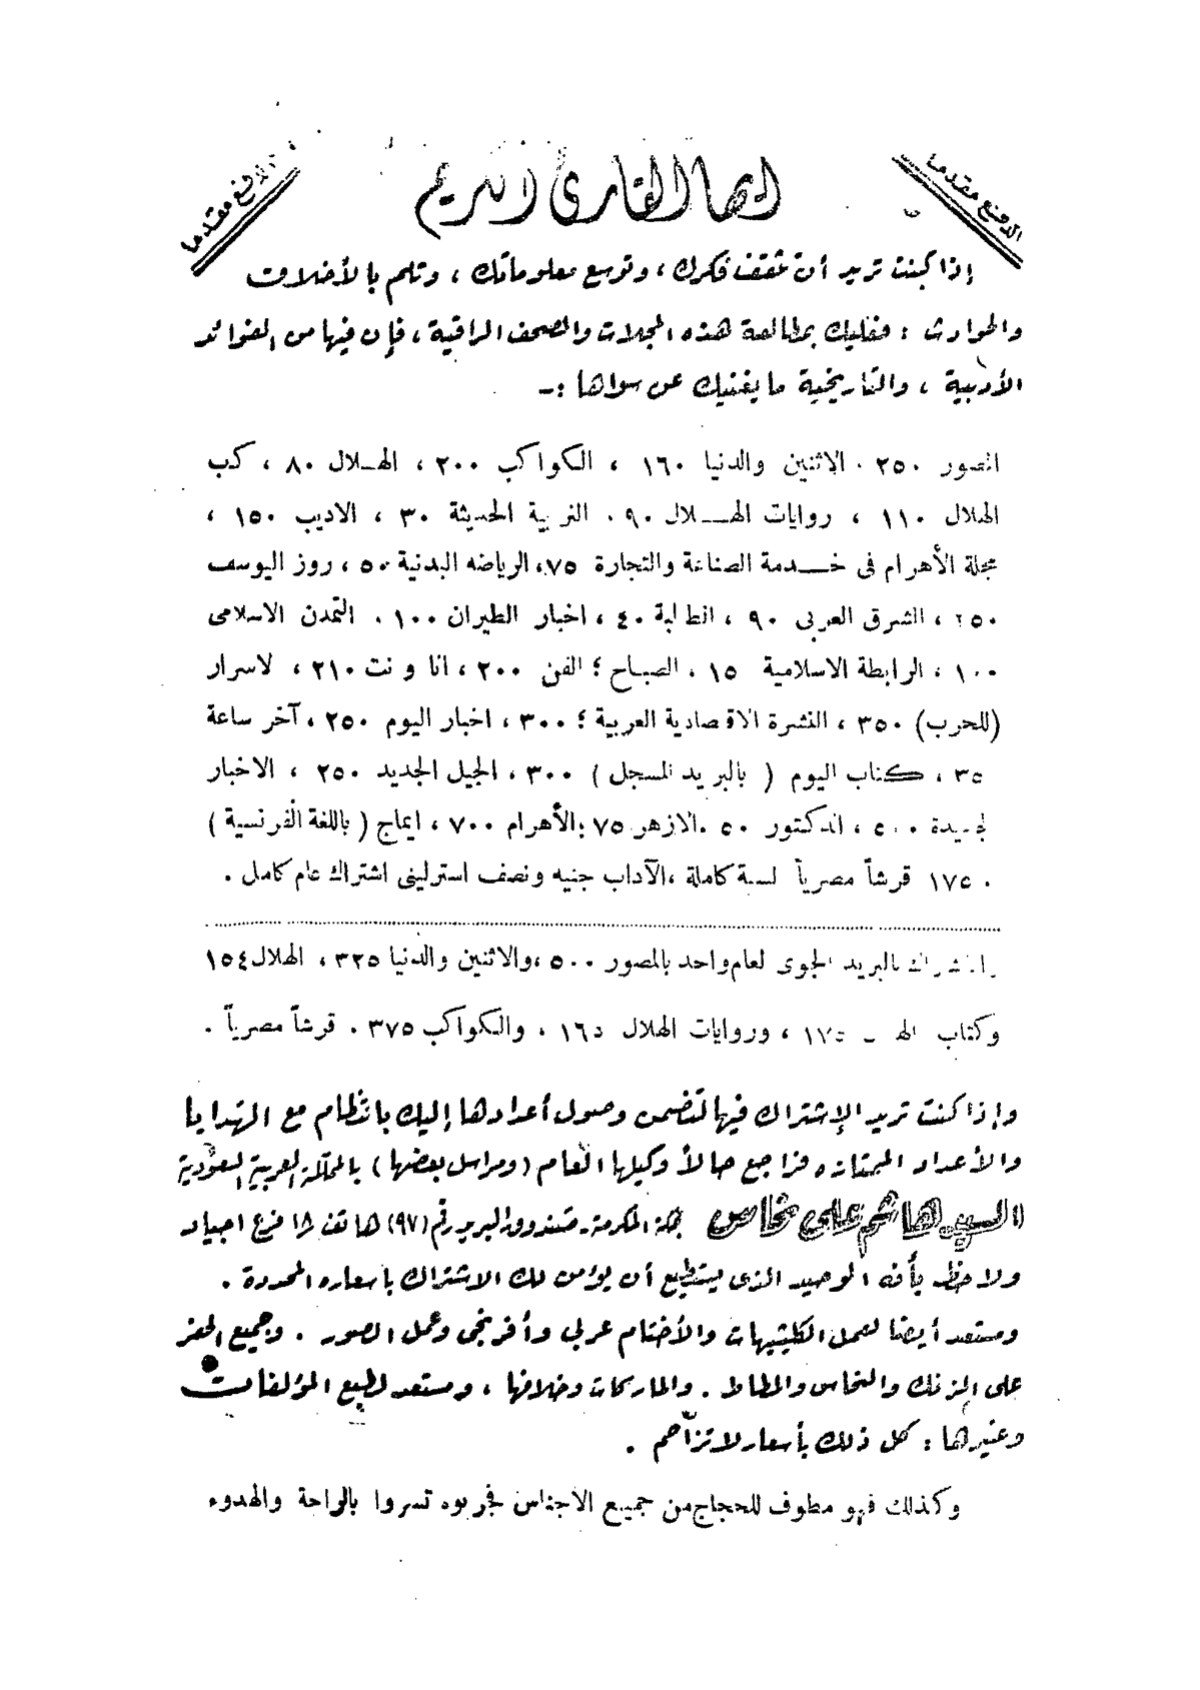 الدفع مقدما
ايها القارئ الكريم
الدفع مقدما
إذا كنت تريد أن تثقف فكرك، وتوسع معلوماتك، وتلم بالأخلاق
والحوادث : فعليك بمطالعة هذه المجلات والصحف الراقية، فإن فيها من الفوائد
الأدبية ، والتاريخية ما يغنيك عن سواها :-
المصور ٢٥٠ . الاثنين والدنيا ١٦٠ ، الكواكب ٢٠٠ ، الهـلال ٨٠ ، كتب
الهلال ١١٠ ، روايات الهـــلال ٩٠ . التربية الحديثة ٣٠ ، الاديب ١٥٠ ،
مجلة الأهرام فى خـــدمة الصناعة والتجارة ٧٥، الرياضه البدنية ٥٠ ، روز اليوسف
٢٥٠ ، الشرق العربى ٩٠ ، الطلبة ٤٠ ، اخبار الطيران ١٠٠ . التمدن الاسلامى
١٠٠ ، الرابطة الاسلامية ١٥ . الصباح ؛ الفن ٢٠٠ ، انا و نت ٢١٠ ، لاسرار
(للحرب) ٣٥٠ ، النشرة الاقصادية العربية ؛ ٣٠٠ ، اخبار اليوم ٢٥٠ ، آخر ساعة
٣٥ ، كتاب اليوم ( بالبريد المسجل ) ٣٠٠ ، الجيل الجديد ٢٥٠ ، الاخبار
لجديدة ٥٠٠ ، الدكتور ٥٠ . الازهر ٧٥ ؛ الأهرام ٧٠٠ ، ايماج ( باللغة الفرنسية )
١٧٥ قرشاً مصرياً لسنة كاملة ، الآداب جنيه ونصف استرلينى اشتراك عام كامل .
بالبريد الجوى لعام واحد بالمصور ٥٠٠ ، والاثنين والدنيا ٣٢٥ ، الهلال ١٥٤
وكتاب ١٧٥ ، وروايات الهلال ١٦٥ . والكواكب ٣٧٥ . قرشاً مصرياً .
وإذا كنت تريد الإشتراك فيها لتضمن وصول أعدادها إليك بانتظام مع الهدايا
والأعداد الممتازه فراجع حالاً وكيلها العام (ومراسل بعضها) بالمملكة العربية السعودية
السيد هاشم على نحاس بمكة المكرمة ـ صندوق البريد رقم (٩٧) هاتف ١٨ فرع اجياد
ولاحظ بأنه الوحيد الذى يستطيع أن يؤمن لك الاشتراك بأسعاره المحددة .
ومستعد أيضا لعمل الكليشيهات والأختام عربي وأفرنجى وعمل الصور . وجميع الحفر
على الزنك والنحاس والمطاط . والماركات وخلافها ، ومستعد لطبع المؤلفات
وغيرها : كل ذلك بأسعار لا تزاحم .
وكذلك فهو مطوف للحجاج من جميع الاجناس فجربوه تسروا بالراحة والهدوء